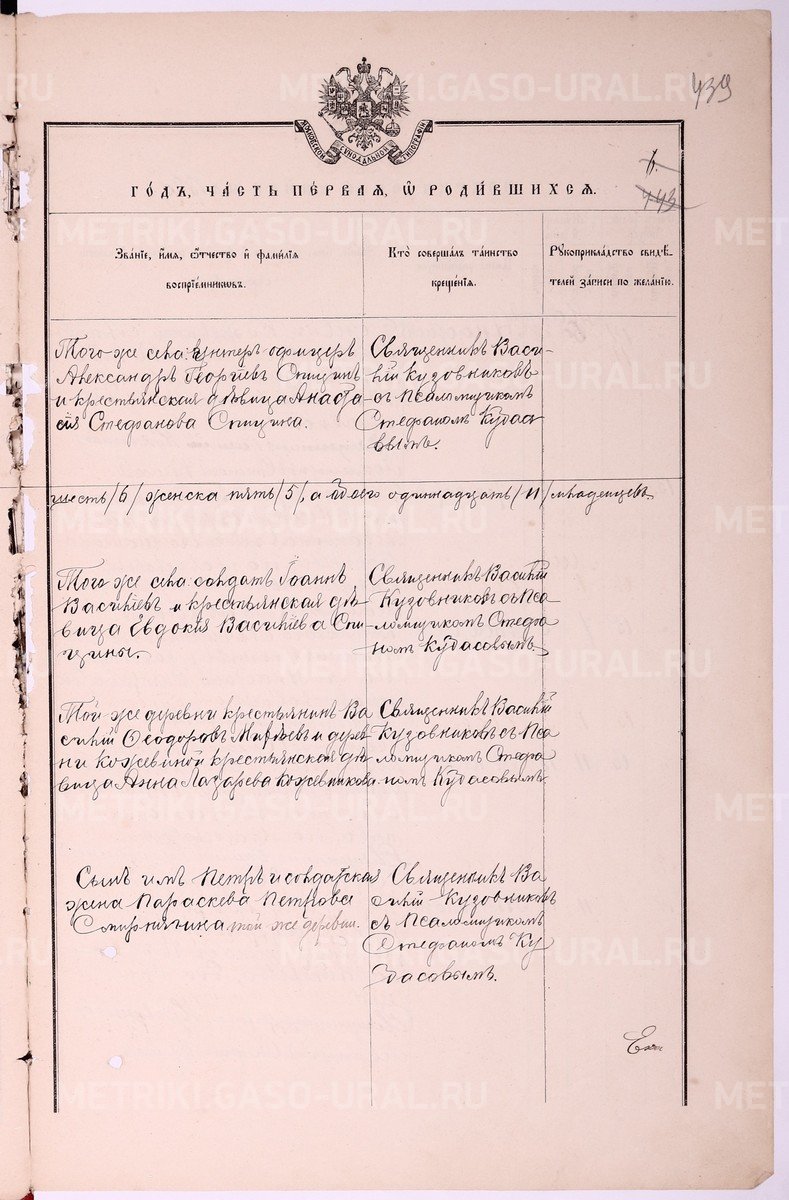 439
МОСКОВСКОЙ СѴНОДАЛЬНОЙ ТИПОГРАФІИ
6.
443
ГО́ДЪ, ЧА́СТЬ ПЕ́РВАЯ, Ѡ҆ РОДИ́ВШИХСЯ.
Зва́нїе, и҆́мя, ѻ҆́тчество и҆ фами́лїя
воспрїе́мникѡвъ.
Кто̀ соверша́лъ та́инство
креще́нїя.
Рꙋкоприкла́дство свидѣ́-
телей за́писи по жела́нїю.
Того же села унтеръ офицеръ
Александръ Георгіевъ Спицинъ
и крестьянская дѣвица Анаста
сія Стефанова Спицина.
Священникъ Васи-
лій Кузовниковъ
съ псаломщикомъ
Стефаномъ Кудасо
вымъ.
шесть /6/ женска пять /5/, а всего одиннадцать /11/ младенцевъ.
Того же села солдатъ Іоаннъ
Василіевъ и крестьянская дѣ
вица Евдокія Василіева Спи
цины.
Священникъ Василій
Кузовниковъ съ пса
ломщикомъ Стефа
номъ Кудасовымъ.
Той же деревни крестьянинъ Ва
силій Ѳеодоровъ и дерев
ни Кожевиной крестьянская дѣ
вица Анна Лазарева Кожевникова.
Священникъ Василій
Кузовниковъ съ пса
ломщикомъ Стефа
номъ Кудасовымъ.
Сынъ имъ Петръ и солдатская
жена Параскева Петрова
той же деревни.
Священникъ Ва
силій Кузовниковъ
съ псаломщикомъ
Стефаномъ Ку
дасовымъ.
METRIKI.GASO-URAL.RU